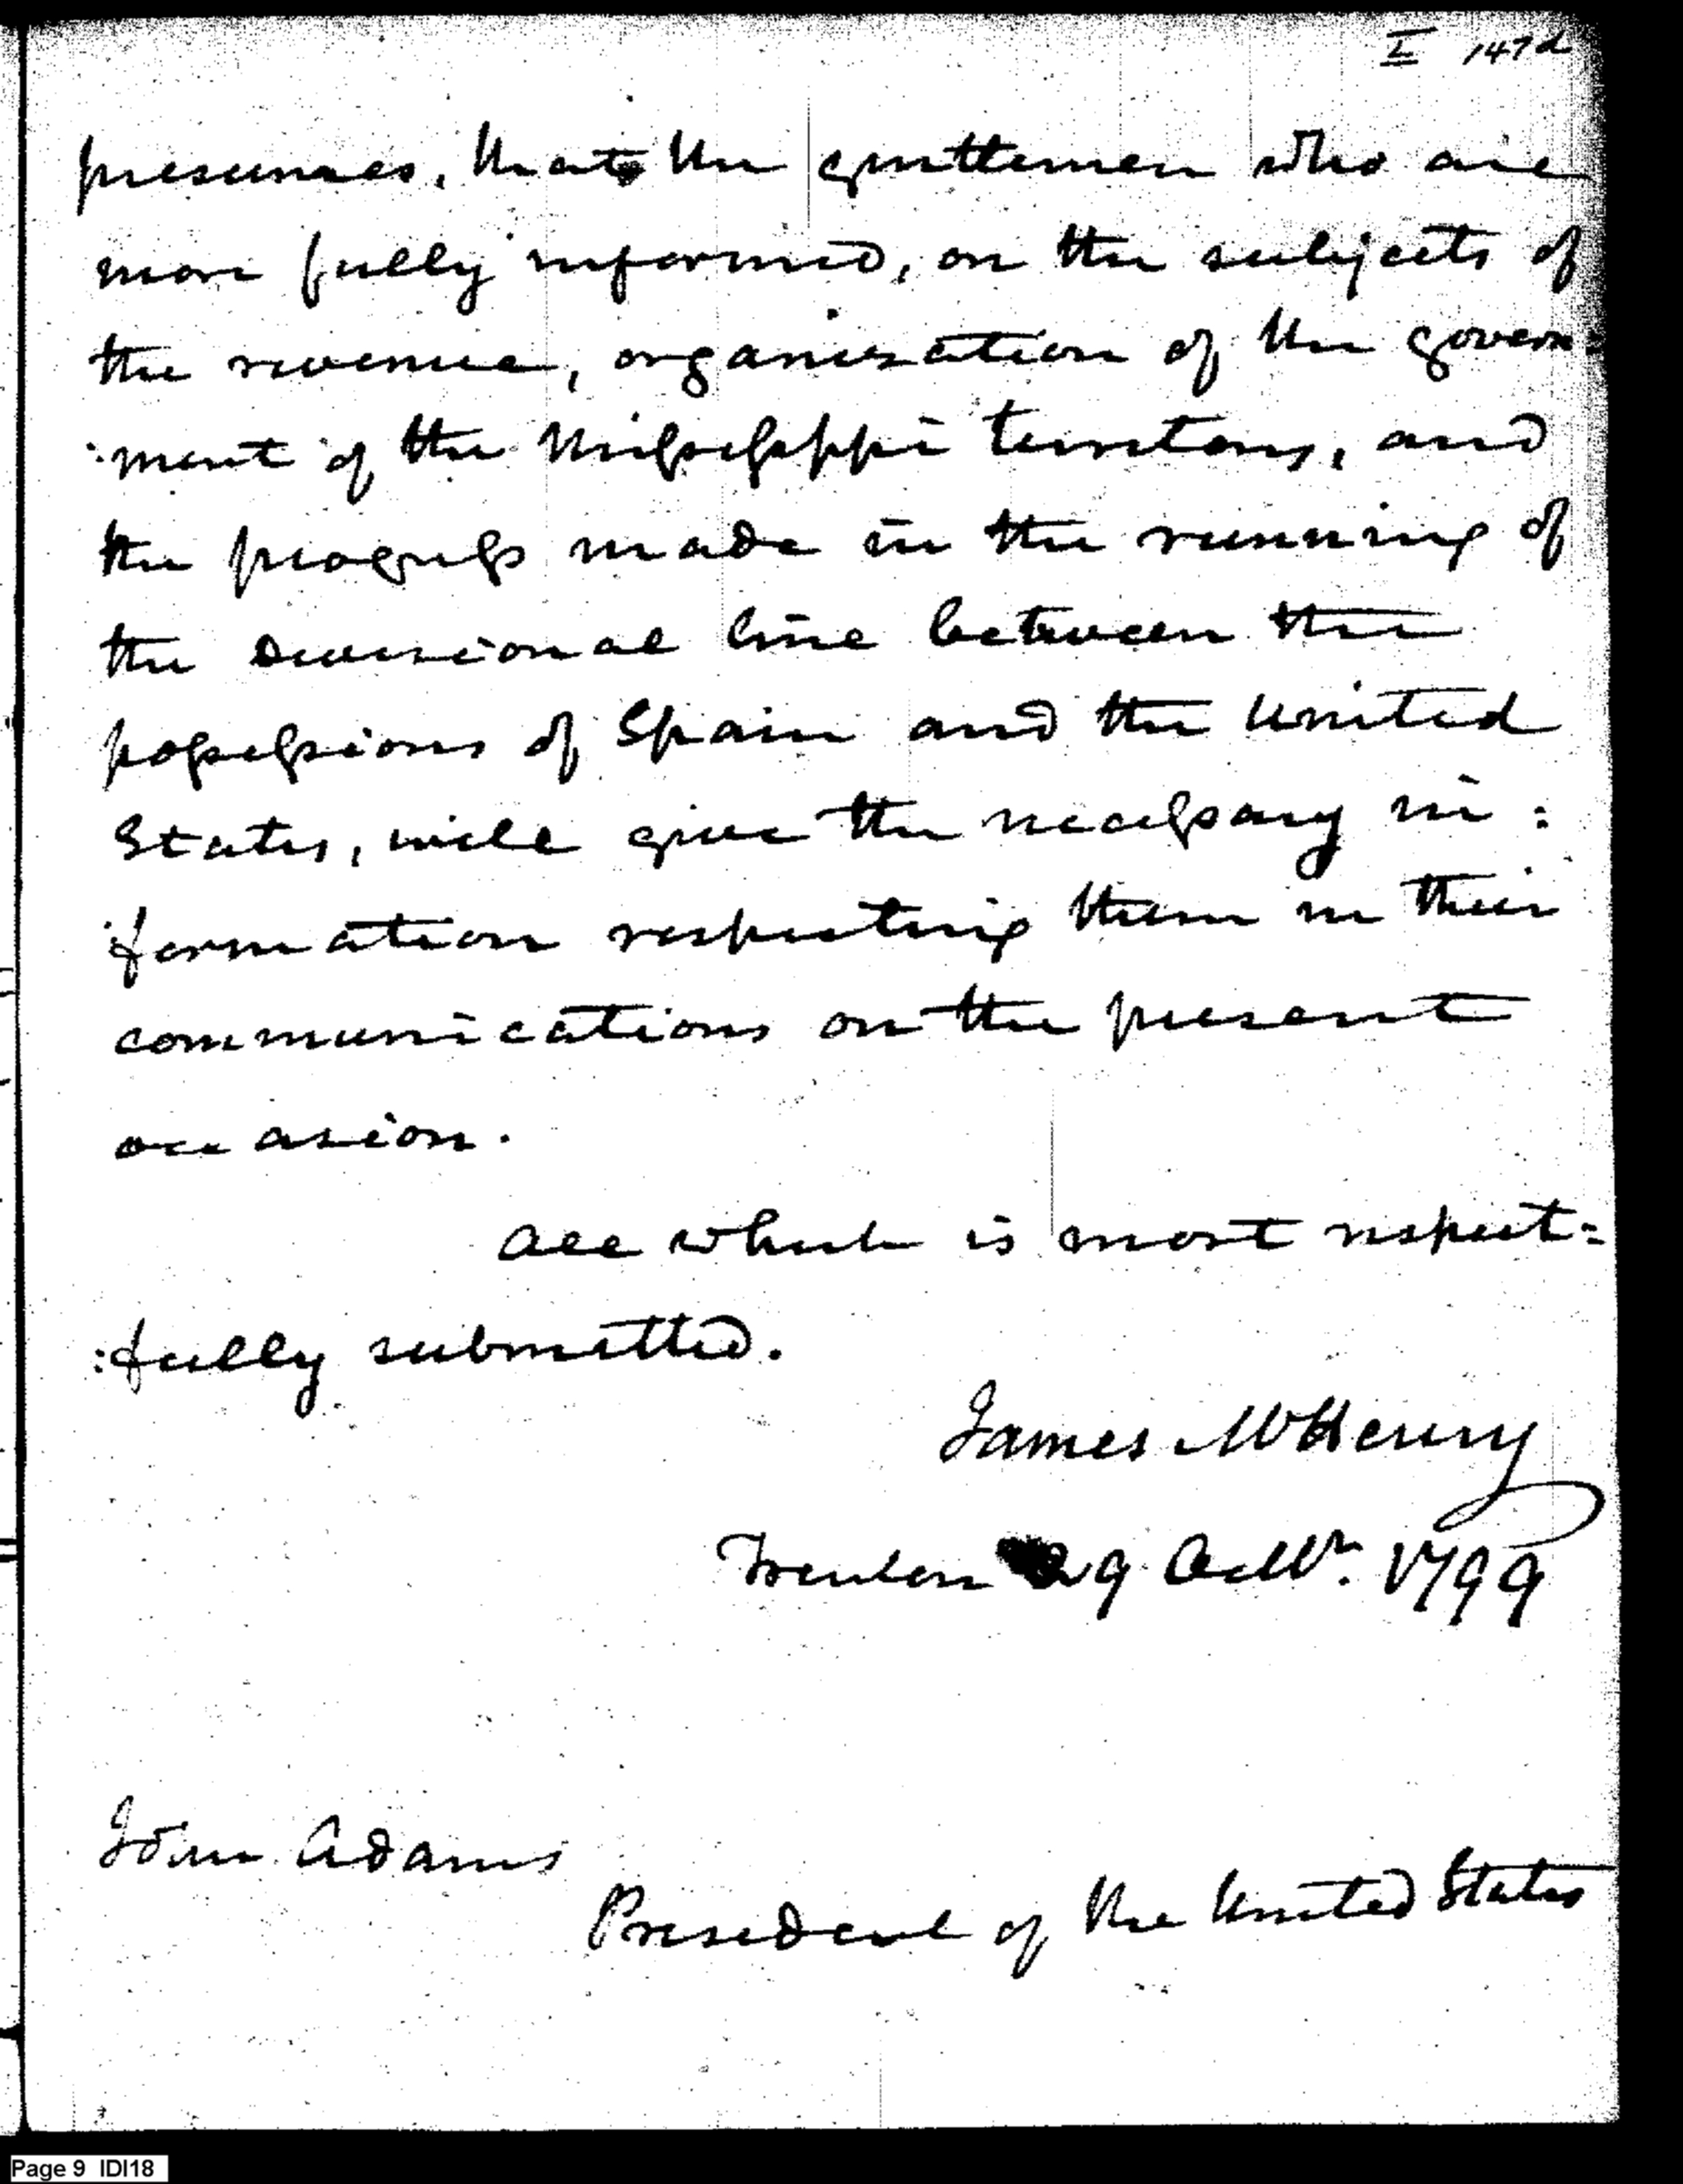 I 147d
presumes, that the gentlemen who are
more fully informed, on the subjects of
the revenue, organization of the govern=
:ment of the Missisippi territory, and
the progress made in the running of
the divisional line between the
possessions of Spain and the United
States, will give the necessary in:
:formation respecting them in their
communications on the present
occasion.
All which is most respect=
:fully submitted.
James McHenry
Trenton 29 Octbr. 1799
John Adams
President of the United States
Page 9 IDI18